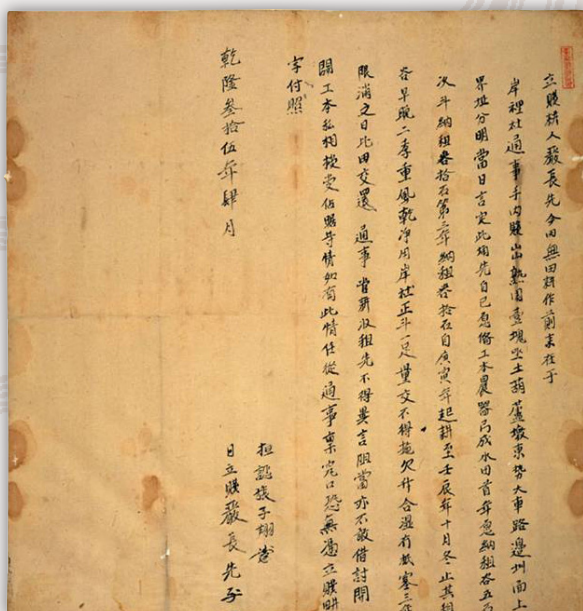 立贌耕人嚴長先今因無田耕作前来在于
岸裡社通事手内贌出熟园壹塊坐土葫蘆墩東勢大車路邊圳面上
界址分明當日言定此埔先自己愿俻工本農器局成水田首年愿納租谷五
次年納租谷拾石第三年納租谷拾石自庚寅年起耕至壬辰年十月冬止其租
谷早晚二季重風乾净用岸社正斗一足量交不得拖欠升合濕有抵塞三年
限滿之日比田交還 通事 管耕收租先不得異言阻當亦不敢借討開
開工本私相授受佔踞等情如有此情任從 通事禀究口恐無憑立贌耕
字付照
乾隆叁拾伍年肆月
担認張子翊
日立贌嚴長先